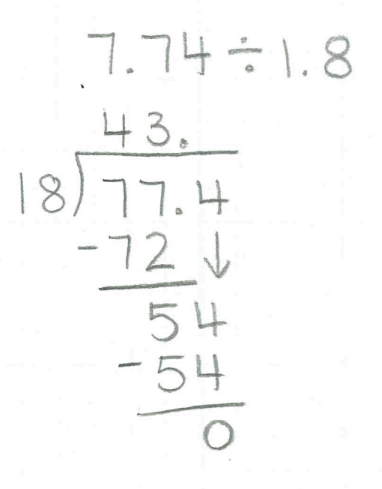 7.74÷1.8
43.
18)77.4
-72↓
54
-54
0